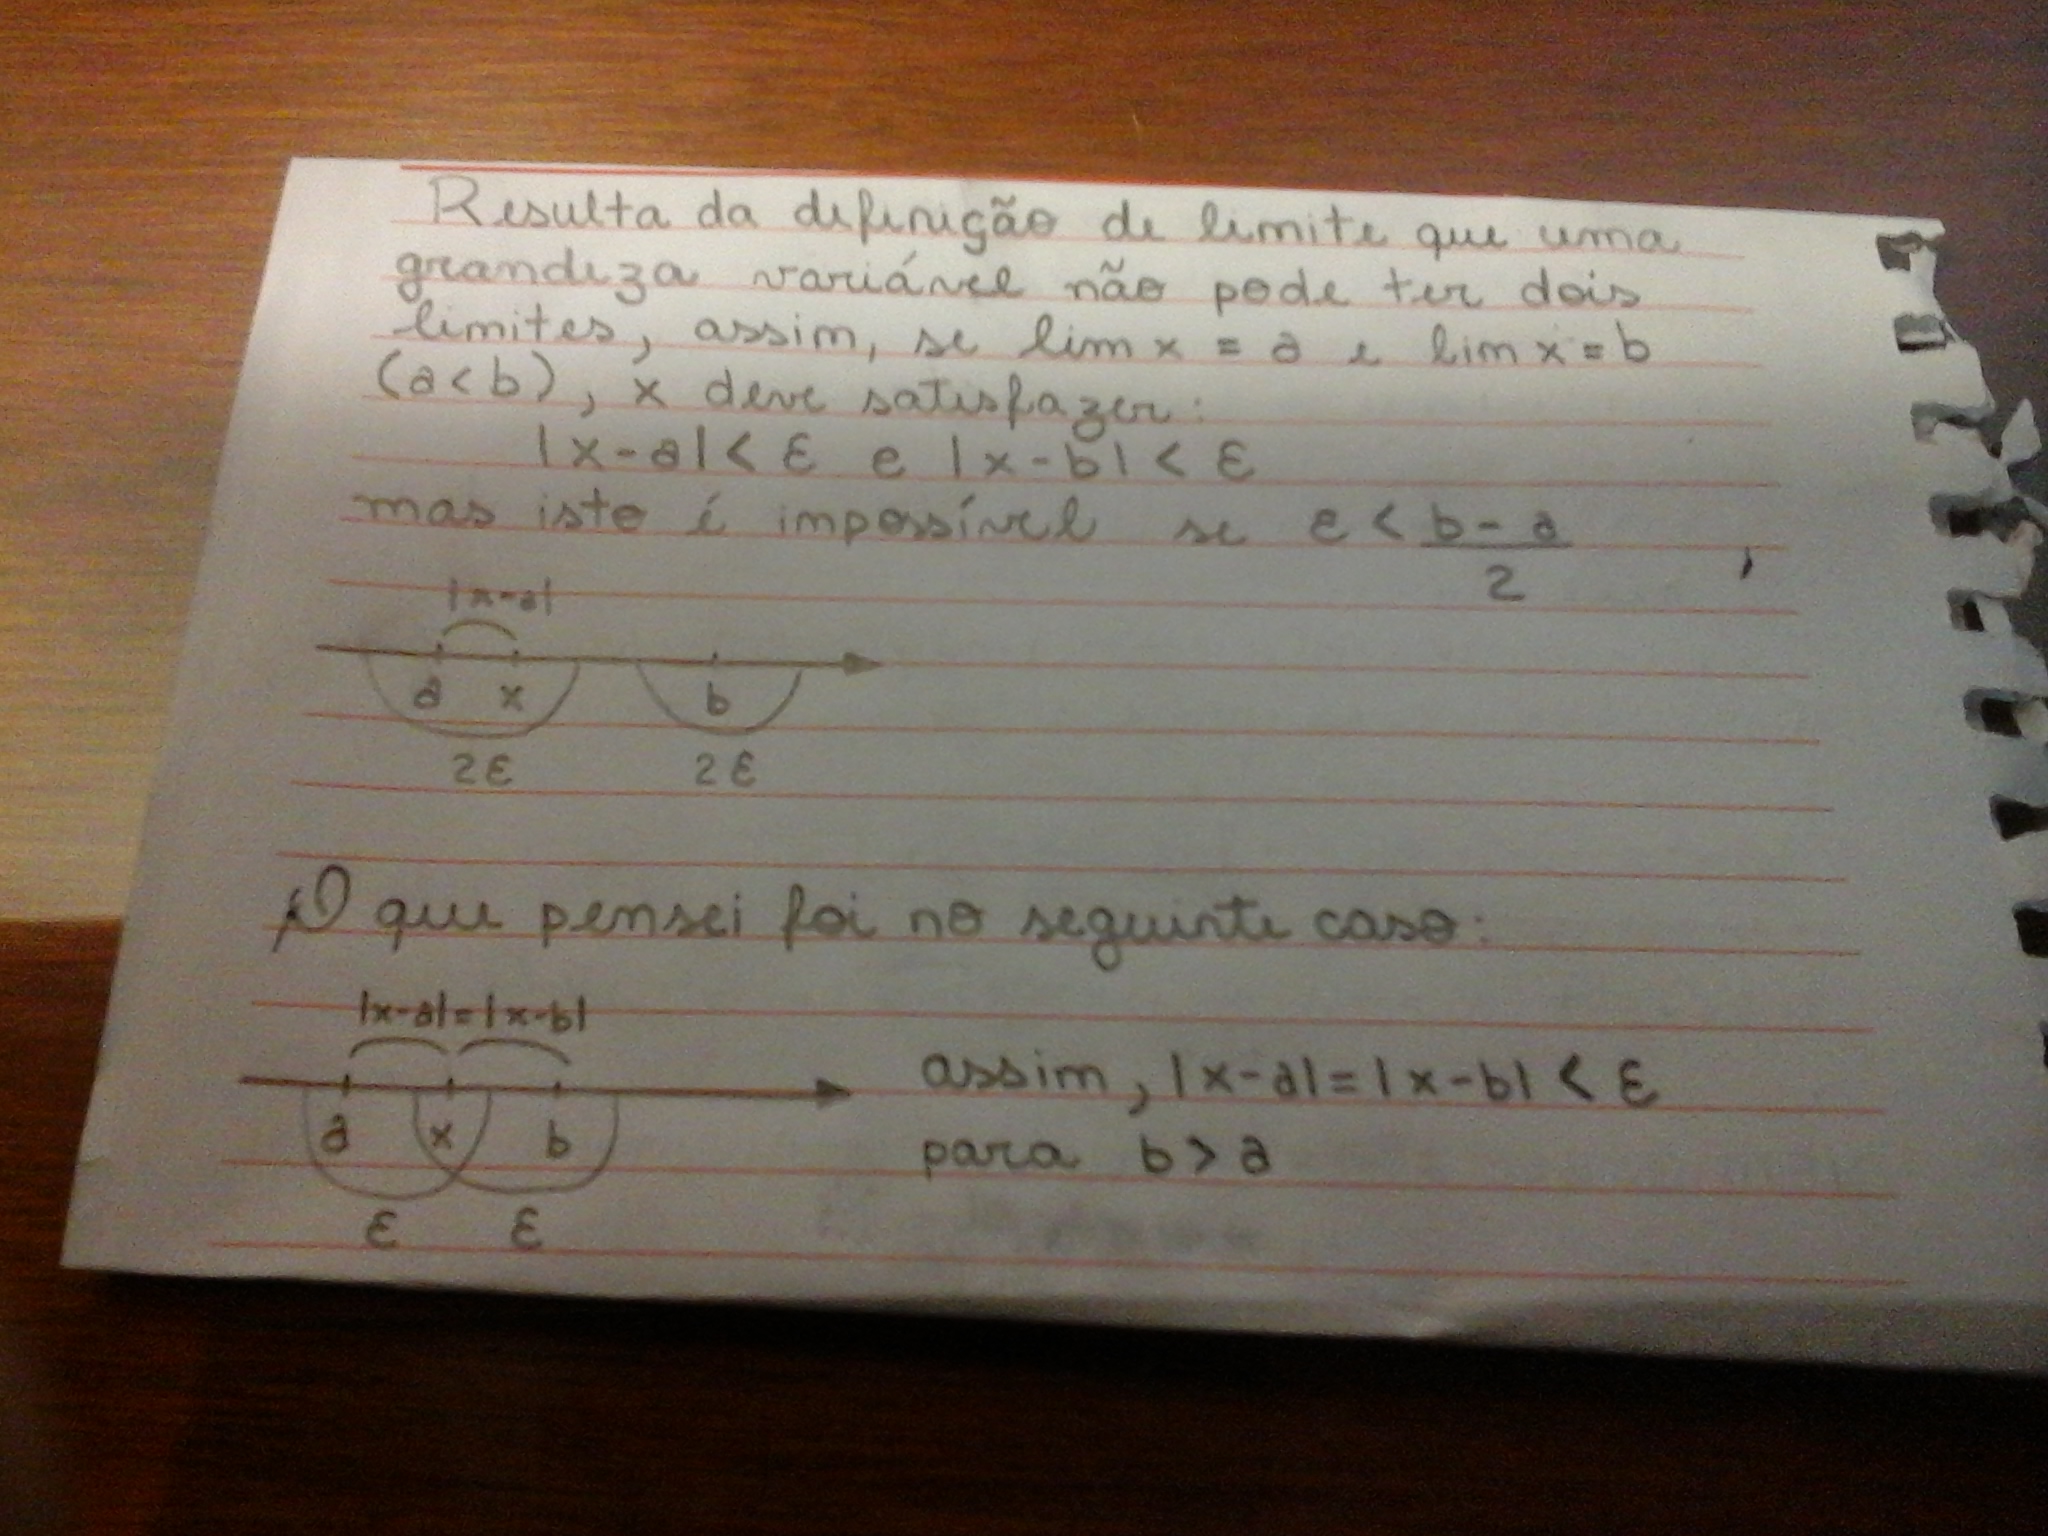 Resulta da definição de limite que uma
grandeza variável não pode ter dois
limites, assim, se lim x = a e lim x = b
(a < b), x deve satisfazer:
|x - a| < ε e |x - b| < ε
mas isto é impossível se ε < (b - a)/2,
|x-a|
a x b
2ε 2ε
O que pensei foi no seguinte caso:
|x-a|=|x-b|
a x b
ε ε
assim, |x-a|=|x-b| < ε
para b > a